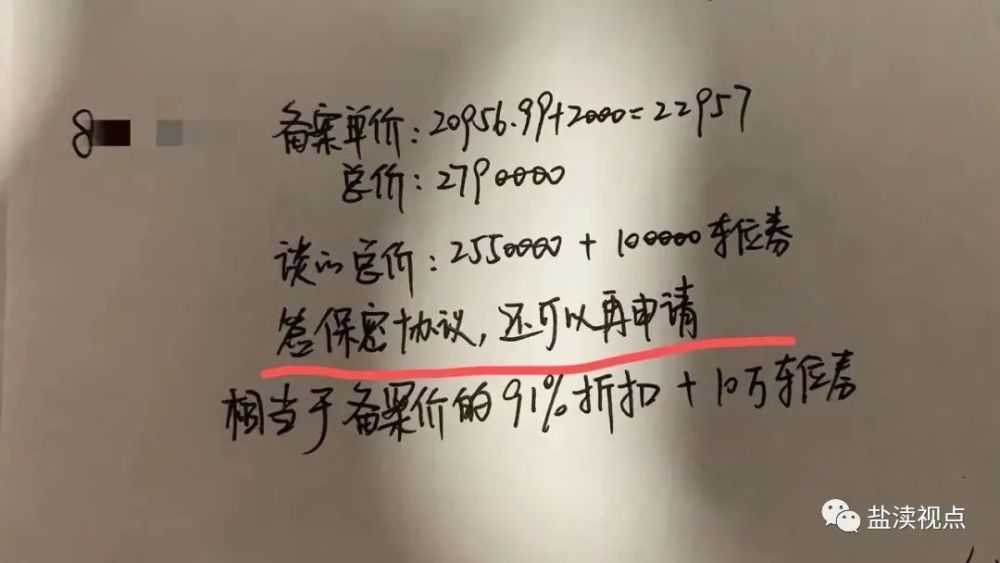 8
备案单价：20956.99+2000=22957
总价：2790000
谈的总价：2550000 + 100000车位券
签保密协议，还可以再申请
相当于备案价的91%折扣 + 10万车位券
盐渎视点